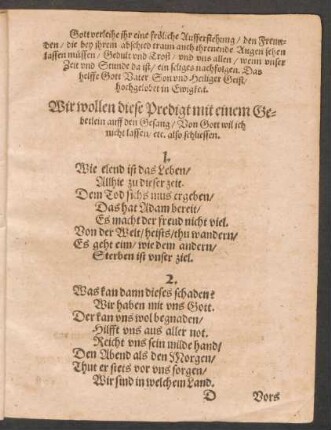 Gott verleihe ihr eine fröliche Aufferstehung / den Freun-
den / die bey ihrem abschied traurn auch threnende Augen sehen
lassen müssen / Gedult und Trost / und uns allen / wenn unser
Zeit und Stunde da ist / ein seliges nachfolgen. Das
helffe Gott Vater Son und Heiliger Geist /
hochgelobet in Ewigkeit.
Wir wollen diese Predigt mit einem Ge-
betlein auff den Gesang / Von Gott wil ich
nicht lassen / etc. also schliessen.
1.
Wie elend ist das Leben /
Allhie zu dieser zeit.
Dem Tod sichs mus ergeben /
Das hat Adam bereit /
Es macht der freud nicht viel.
Von der Welt / heists / thu wandern /
Es geht eim / wie dem andern /
Sterben ist vnser ziel.
2.
Was kan dann dieses schaden?
Wir haben mit vns Gott.
Der kan vns wol begnaden /
Hilfft vns aus aller not.
Reicht vns sein milde hand /
Den Abend als den Morgen /
Thut er stets vor vns sorgen /
Wir sind in welchem Land.
D Vors